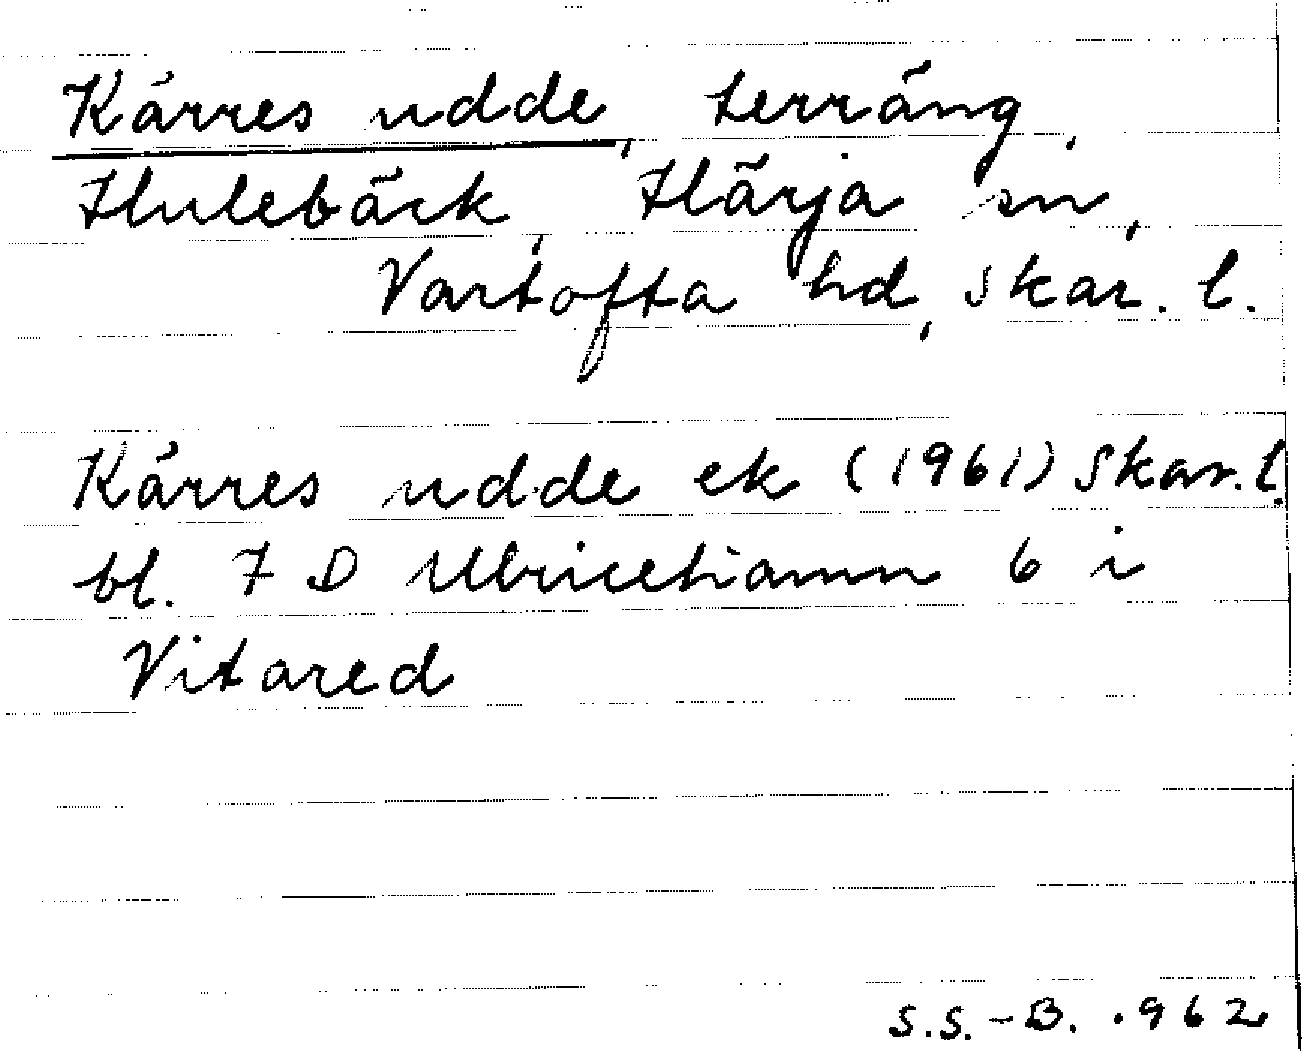 Kärres udde, terräng,
Hulebäck, Härja sn,
Vartofta hd, Skar. l.
Kärres udde ek (1961) Skar. l.
bl. 7 D Ulricehamn 6 i
Vitared
S.S.-B. .962